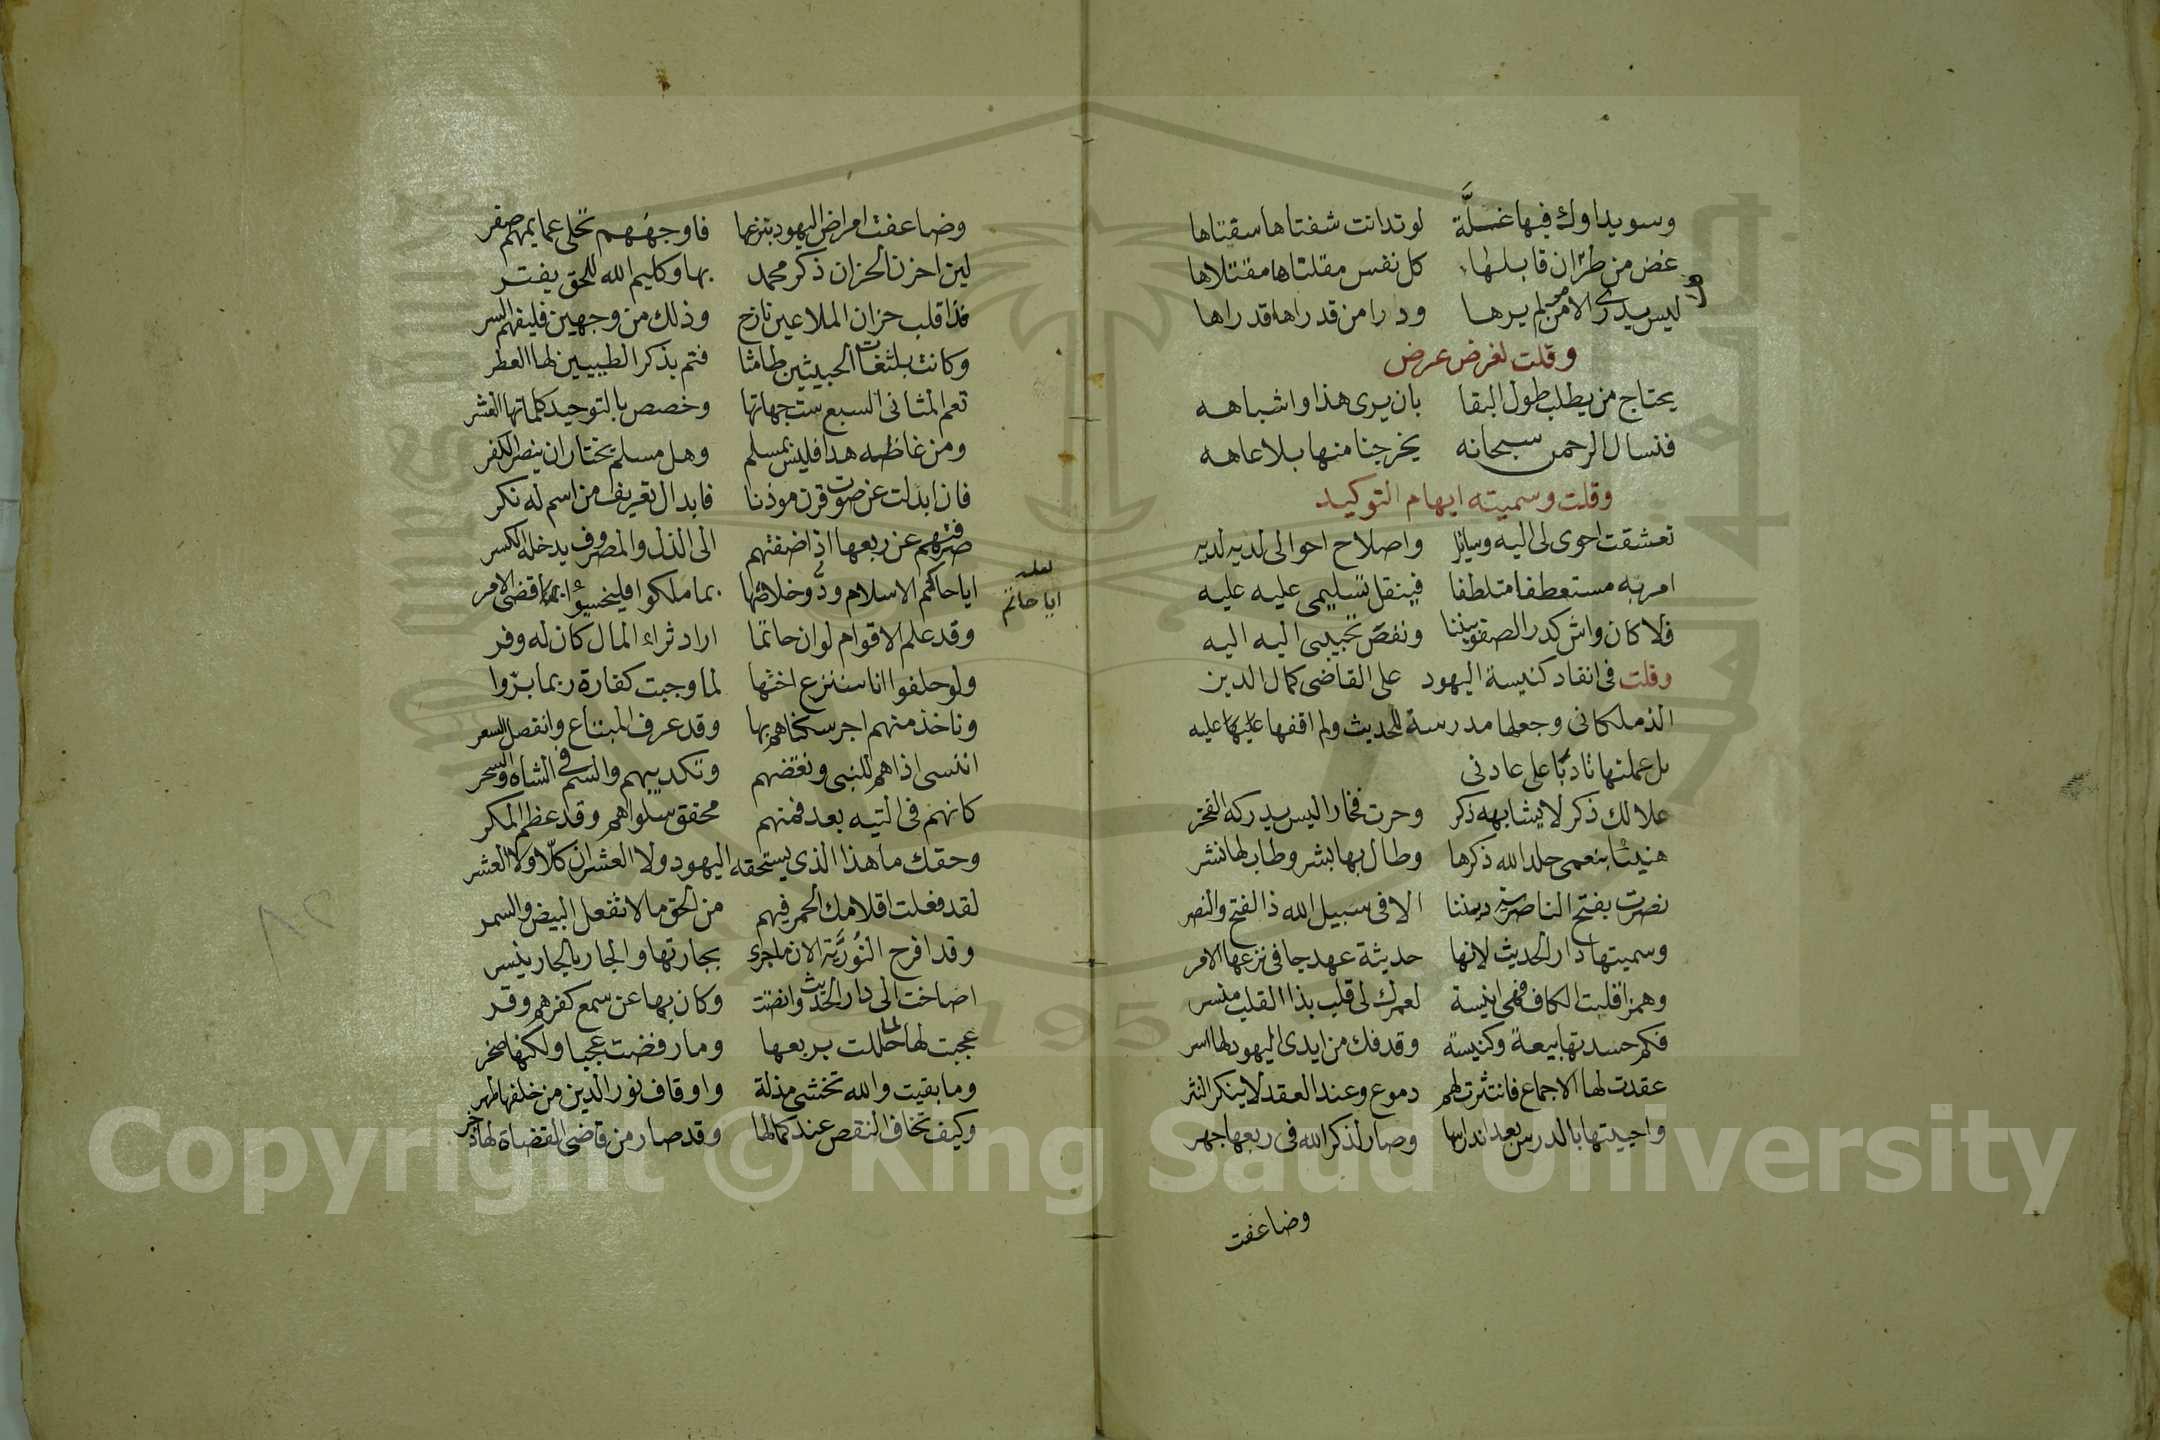 وسويداوك فيها غسلة لو تدانت شفتاها سقتاها
غض من طر ان قابلها كل نفس مقلتاها مقتلاها
ليس يدري الامن من لم يرها ودرا من قدراها قدراها
وقلت لغرض عرض
يحتاج من يطلب طول البقا بان يرى هذا واشباهه
فنسال الرحمن سبحانه يخرجنا منها بلا عاهه
وقلت وسميته ايهام التوكيد
تعشقت احوى لى اليه وسايل واصلاح احوالى لديه لديه
امر به مستعطفا متلطفا فيثقل تسليمى عليه عليه
فلا كان واش كدر الصفو بيننا ونغص تحبيبى اليه اليه
وقلت فى انقاد كنيسة اليهود على القاضى كمال الدين
الزملكانى وجعلها مدرسة للحديث ولم اقفها عليها عليه
بل عملتها تادبا على عادتى
علا لك ذكر لا يشابهه ذكر وحرت فخارا ليس يدركه الفخر
هنيئا بنعمى خلد الله ذكرها وطال بها بشر وطاب لها نشر
نصرت بفتح الناصرية ديننا الا فى سبيل الله ذا الفتح والنصر
وسميتها دار الحديث لانها حديثة عهد جا فى نزعها الامر
وهمزا قلبت الكاف فهى انيسة لعمرك لى قلب بذا القلب منسر
فكم حسدتها بيعة وكنيسة وقد فك من ايدى اليهود لها اسر
عقدت لها الاجماع فانتثرت لهم دموع وعند العقد لا ينكر النثر
واحييتها بالدرس بعد اندراسها وصار لذكر الله فى ربعها جهر
وضاعفت
وضاعفت امراض اليهود بنزعها فاوجههم تحلى عمايمهم صفر
لين احزن الحزان ذكر محمد بها وكليم الله للحق يفتر
فذا قلب حزان الملاعين نازح وذلك من وجهين فليفهم السر
وكانت بلثغات الخبيثين طامثا فتم بذكر الطيبيين لها العطر
تعم المثانى السبع ست جهاتها وخصص بالتوحيد كلماتها العشر
ومن غاظه هدا فليس بمسلم وهل مسلم يختار ان ينصر الكفر
فان ابدلت عن صوت قرن موذنا فابدال تعريف من اسم له نكر
صرفتهم عن ربعها اذ اضفتهم الى الذل والمصروف يدخله الكسر
ايا حاكم الاسلام ود وخلاتها بما ملكوا فليخسوا بها قضى الامر
لعله
ايا حاتم
وقد علم الاقوام لو ان حاتما اراد ثراء المال كان له وفر
ولو حلفوا انا سننزع اختها لما وجبت كفارة ربما بروا
وناخذ منهم اجر سكناهم بها وقد عرف المبتاع وانفصل السعر
اننسى اذاهم للنبى ونغضهم وتكديبهم والسم فى الشاه والسحر
كانهم فى التيه بعد فمنهم محقق سلواهم وقد عظم المكر
وحقك ما هذا الذى يستحقه اليهود ولا العشران كلا ولا العشر
لقد فعلت اقلامك الحمر فيهم من الحق ما لا تفعل البيض والسمر
وقد افرح النورية الان ما جرى بجارتها والجار بالجار ينسر
اصاخت الى دار الحديث وانصتت وكان بها عن سمع كفرهم وقر
عجبت لها لما حللت بربعها وما رفضت عجبا ولكنها صخر
وما بقيت والله تخشى مذلة واوقاف نور الدين من خلفها ظهر
وكيف تخاف النقص عند كمالها وقد صار من قاضى القضاة لها ذخر